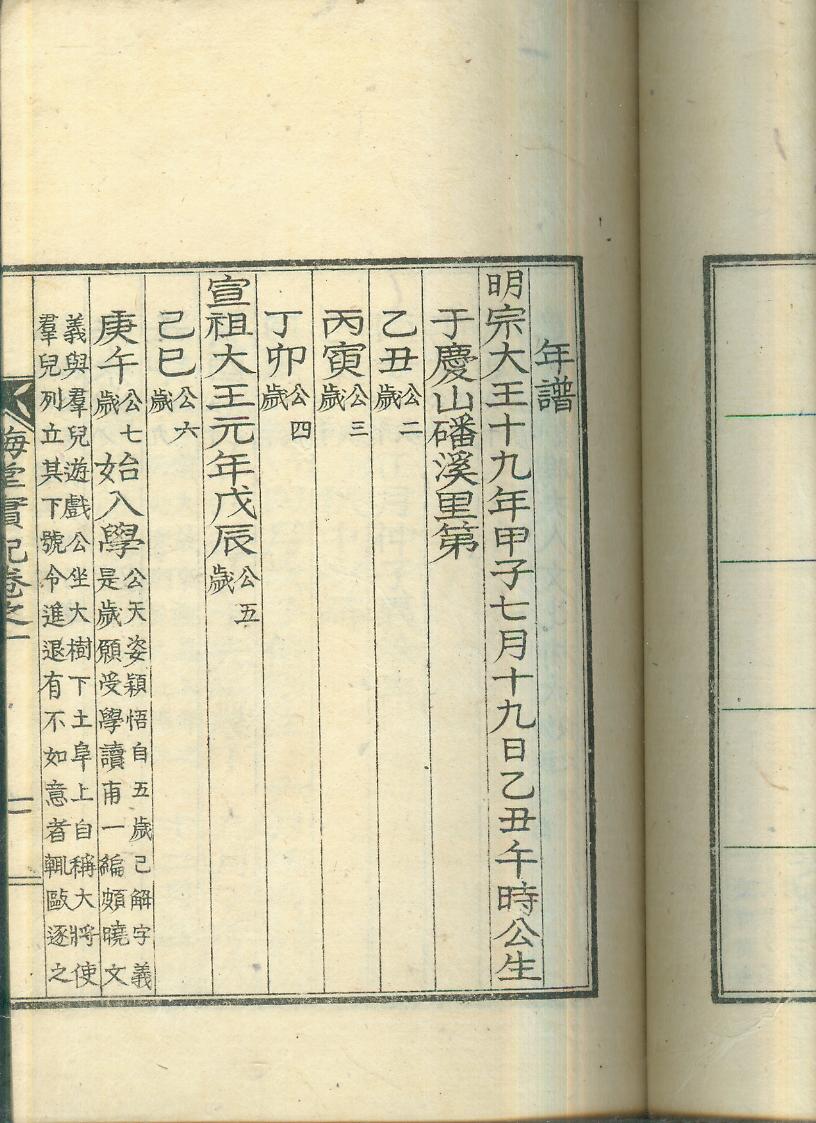 年譜
明宗大王十九年甲子七月十九日乙丑午時公生
于慶山磻溪里第
乙丑公二歲
丙寅公三歲
丁卯公四歲
宣祖大王元年戊辰公五歲
己巳公六歲
庚午公七歲始入學公天姿穎悟自五歲已解字義
是歲願受學讀甫一編頗曉文
義與羣兒遊戲公坐大樹下土阜上自稱大將使
羣兒列立其下號令進退有不如意者輒歐逐之
堂實記卷之一